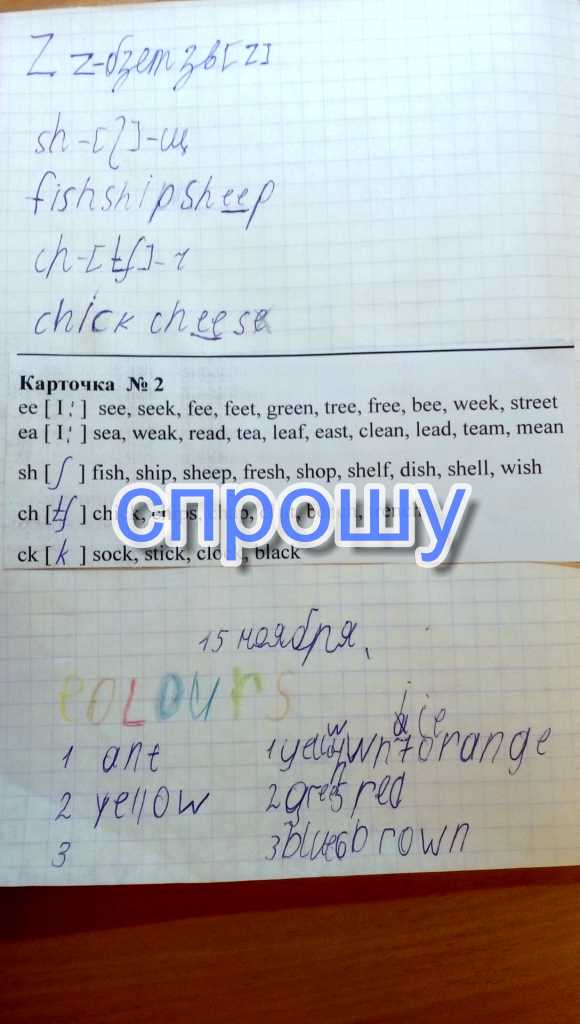 Z z-бзет зв[z]
sh-[ʃ]-щ
fish ship sheep
ch-[tʃ]-ч
chick cheese
Карточка № 2
ee [ I: ] see, seek, fee, feet, green, tree, free, bee, week, street
ea [ I: ] sea, weak, read, tea, leaf, east, clean, lead, team, mean
sh [ ʃ ] fish, ship, sheep, fresh, shop, shelf, dish, shell, wish
ch [ tʃ ] chick,
спрошу
ck [ k ] sock, stick, clock, black
15 ноября
COLOURS
1 ant
2 yellow
3
orange
2 green 5 red
3 blue 6 brown